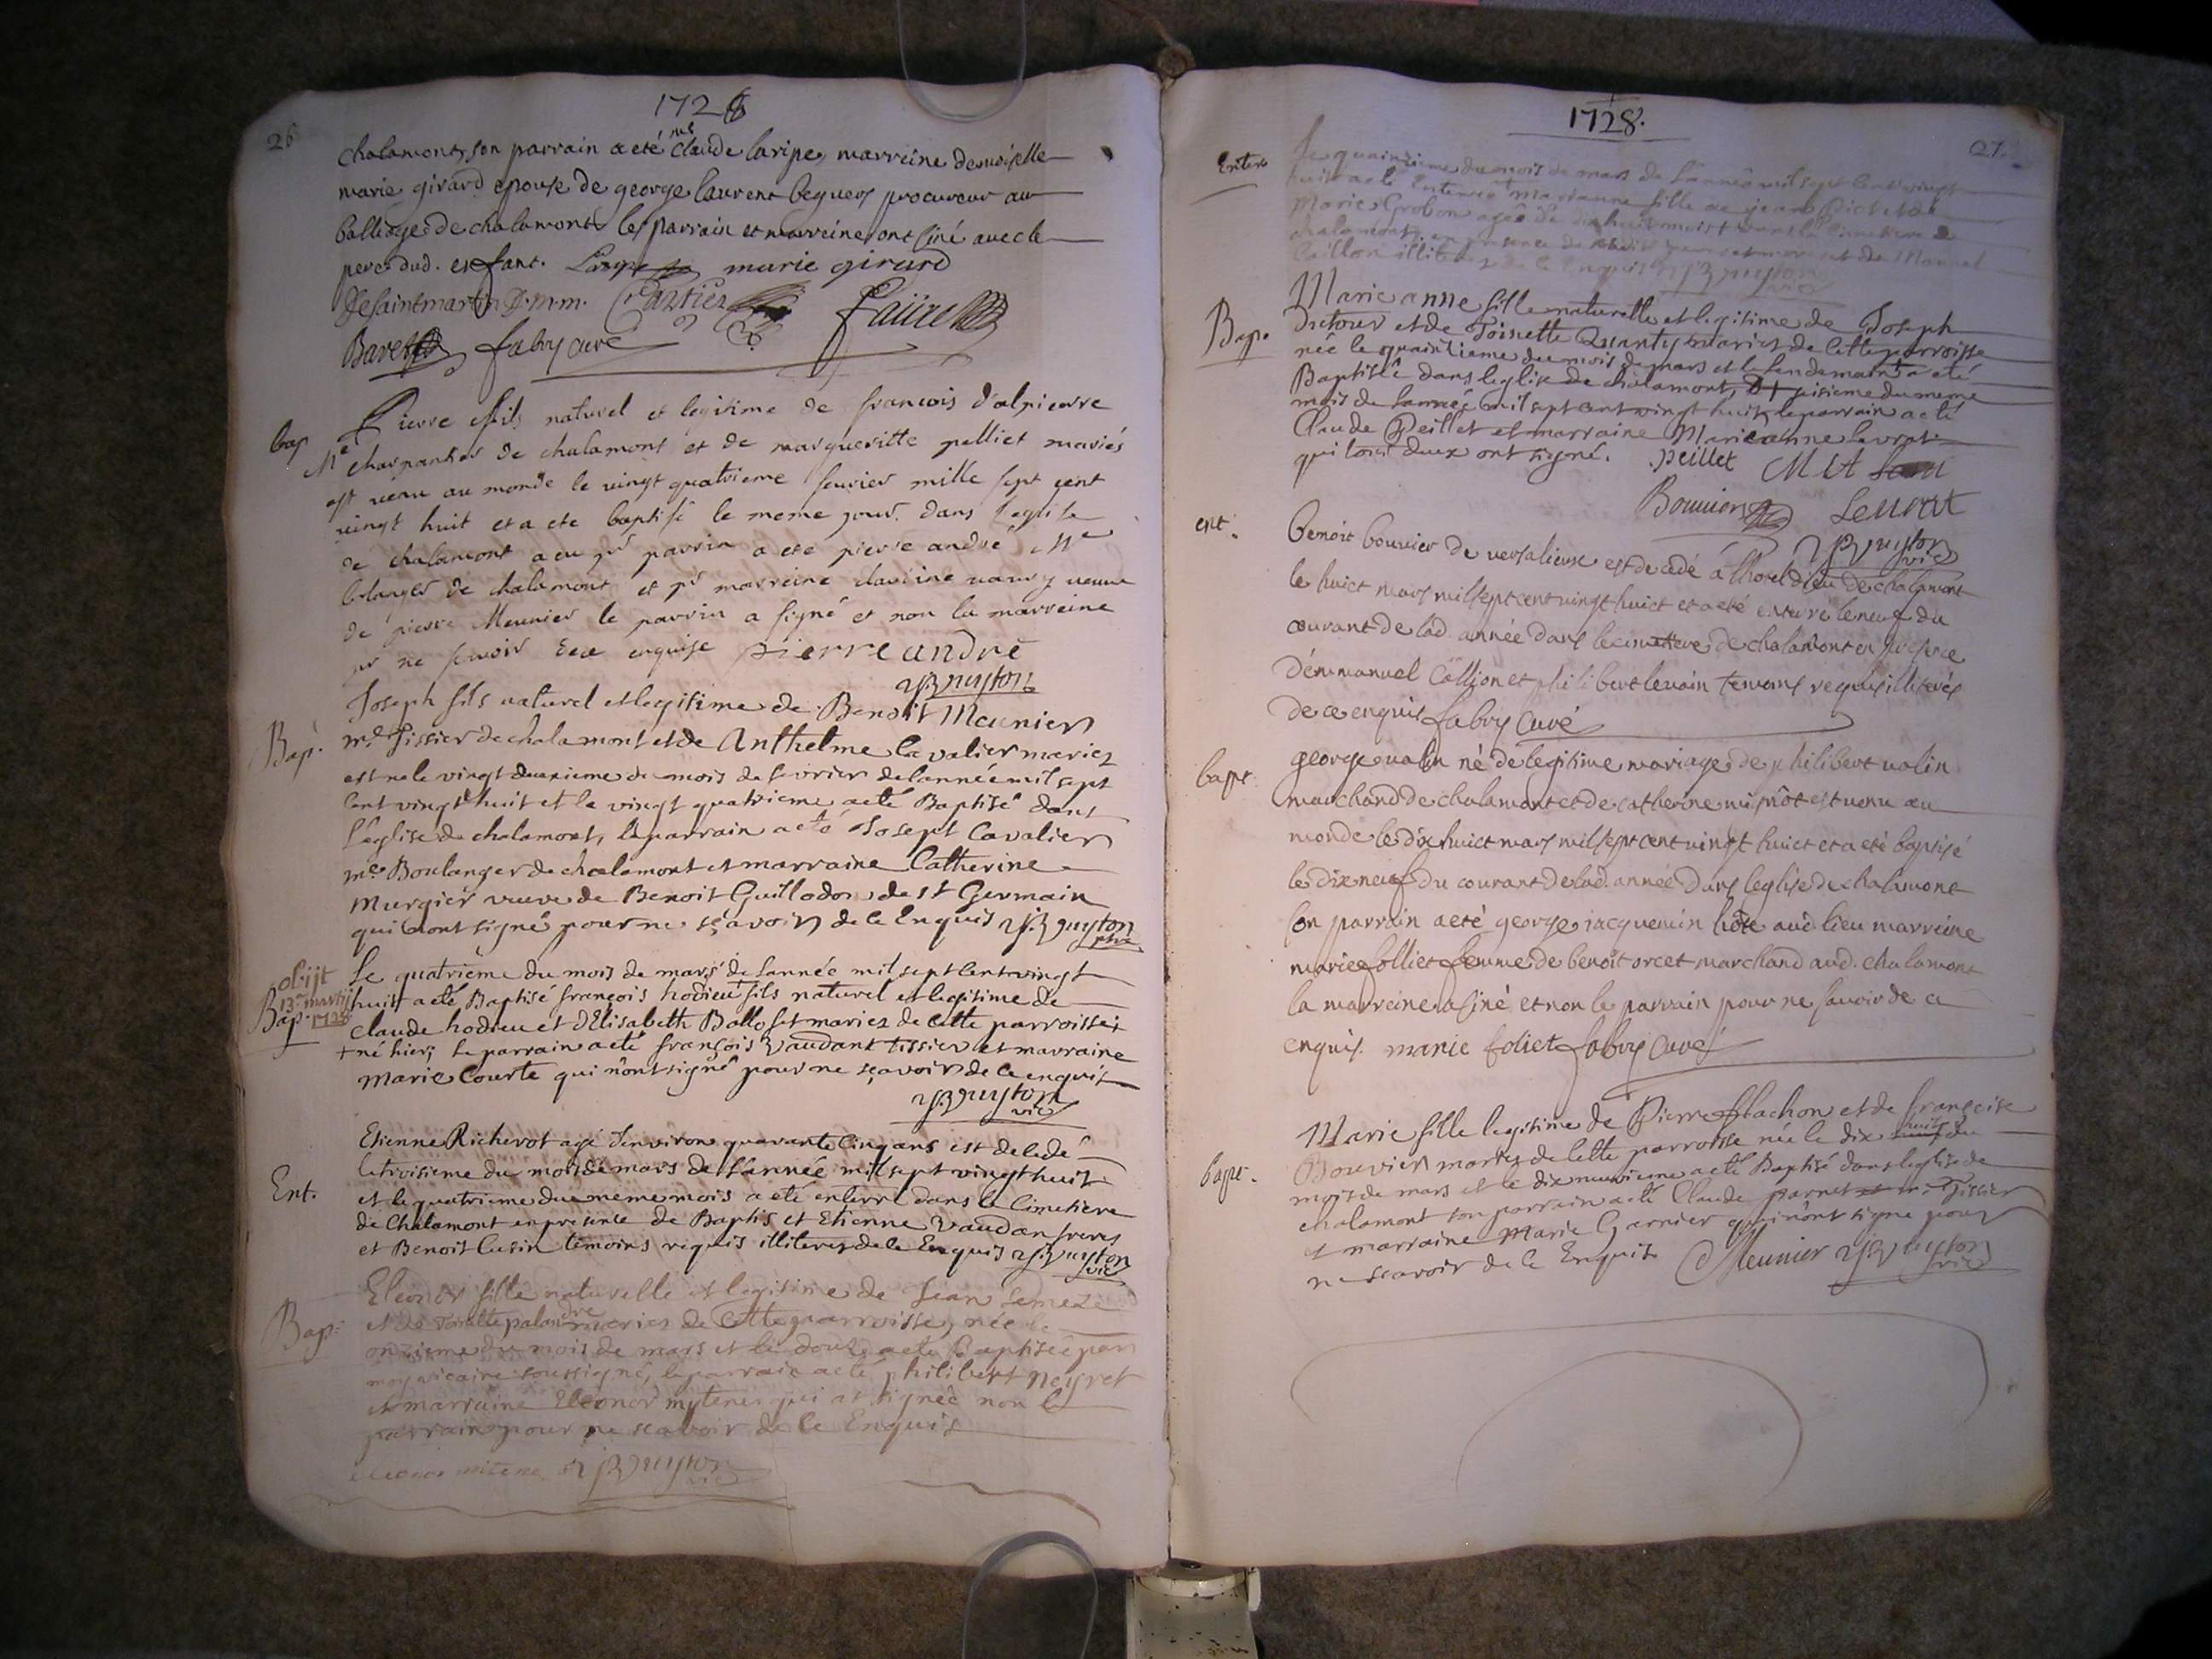 1728
26
chalamont, son parrain a eté me Claude laripe, marreine demoiselle
marie girard epouse de george laurent beguers procureur au
balliage de chalamont les parrain et marreine ont siné avec le
pere dud. enfant. Laripe marie girard
DeSaintmartin D.m.m. Cartier faure
Baret fabry curé
bap
Pierre fils naturel et legitime de francois d'alpierre
Me charpantier de chalamont et de margueritte pelliet mariés
est venu au monde le vingt quatrieme fevrier mille sept cent
vingt huit et a ete baptisé le meme jour dans l'eglise
de chalamont a eu pr parrin a ete pierre andré Me
bolanger de chalamont et pr marreine claudine veuve
de pierre Meunier le parrin a signé et non la marreine
pr ne scavoir de ce enquise pierre andré
guyton
Bap.
Joseph fils naturel et legitime de Benoit Meunier
me Tissier de chalamont et de Anthelme Cavalier mariez
est né le vingt deuxieme du mois de fevrier de l'année mil sept
cent vingt huit et le vingt quatrieme a eté Baptisé dans
l'eglise de chalamont, le parrain a eté Josept Cavalier
me Boulanger de chalamont et marraine Catherine
Murgier veuve de Benoit Guillodon de st Germain
qui n'ont signé pour ne sçavoir de ce Enquis guyton
obijt
13a martij
1728
Bap.
Le quatrième du mois de mars de l'année mil sept cent vingt
huit a eté Baptisé françois hodieu fils naturel et legitime de
Claude hodieu et d'Elisabeth Ballofet mariez de cette parroisse
+ né hier; le parrain a eté françois Vaudant tissier et marraine
Marie Courte qui n'ont signé pour ne sçavoir de ce enquis
guyton
vic
Ent.
Etienne Richerot agé d'environ quarante cinq ans est decedé
le troisieme du mois de mars de l'année mil sept vingt huit
et le quatrieme du meme mois a eté enterré dans le Cimetiere
de Chalamont en presence de Baptis et Etienne Vaudan freres
et Benoit lusin temoins requis illiteres de ce Enquis guyton
vic
Bap.
Eleonor fille naturelle et legitime de Jean
et de Toinette palandre mariez de Cette parroisse, née le
onzieme du mois de mars et le douze a eté Baptisée par
moy vicaire soussigné, le parrain a eté philibert neyret
et marraine Eleonor mytene qui a signée non le
parrain pour ne scavoir de ce Enquis
eleonor mitene guyton
vic
1728.
27.
Enter.
Le quainzieme du mois de mars de l'année mil sept cent vingt
huit a eté Enterrée Marianne fille de jean Pichet et de
Marie Grobon agée de dix huit mois dans le Cimetiere de
chalamont en presence de
Caillon illiteres de ce Enquis guyton
vic
Bap.
Marie anne fille naturelle et legitime de Joseph
Ductour et de Toinette Quanty mariez de Cette parroisse
née le quainzieme du mois de mars et le lendemain a eté
Baptisée dans leglise de chalamont, seisieme du meme
mois de l'année mil sept cent vingt huit, le parrain a eté
Claude Peillet et marraine Marie anne levrat
qui tous deux ont signé. peillet M A
Bouvier Leurat
guyton
vic
ent.
benoit bouvier de versalieux est decedé à lhotel dieu de chalamont
le huict mars mil sept cent vingt huict et a eté enterré le neuf du
courant de lad. année dans le cimettere de chalamont en presence
d'emmanuel Caillion et philibert levain temoins requis illiterés
de ce enquis fabry curé
bapt.
george valin né de legitime mariage de philibert valin
marchand de chalamont et de catherine mignot est venu au
monde le dix huict mars mil sept cent vingt huict et a eté baptisé
le dix neuf du courant de lad. année dans leglise de chalamont
son parrain a eté george jacquemin hôte aud. lieu marreine
marie folliet femme de benoit orcet marchand aud. chalamont
la marreine a siné et non le parrain pour ne savoir de ce
enquis. marie foliet fabry curé
bapt.
Marie fille legitime de Pierre flachon et de françoise
Bouvier mariez de Cette parroisse née le dix huit du
mois de mars et le dix neuvieme a eté Baptisé dans leglise de
chalamont son parrain a eté Claude parnet Tissier
et marraine Marie Garnier qui n'ont signe pour
ne scavoir de ce Enquis Meunier guyton
vic